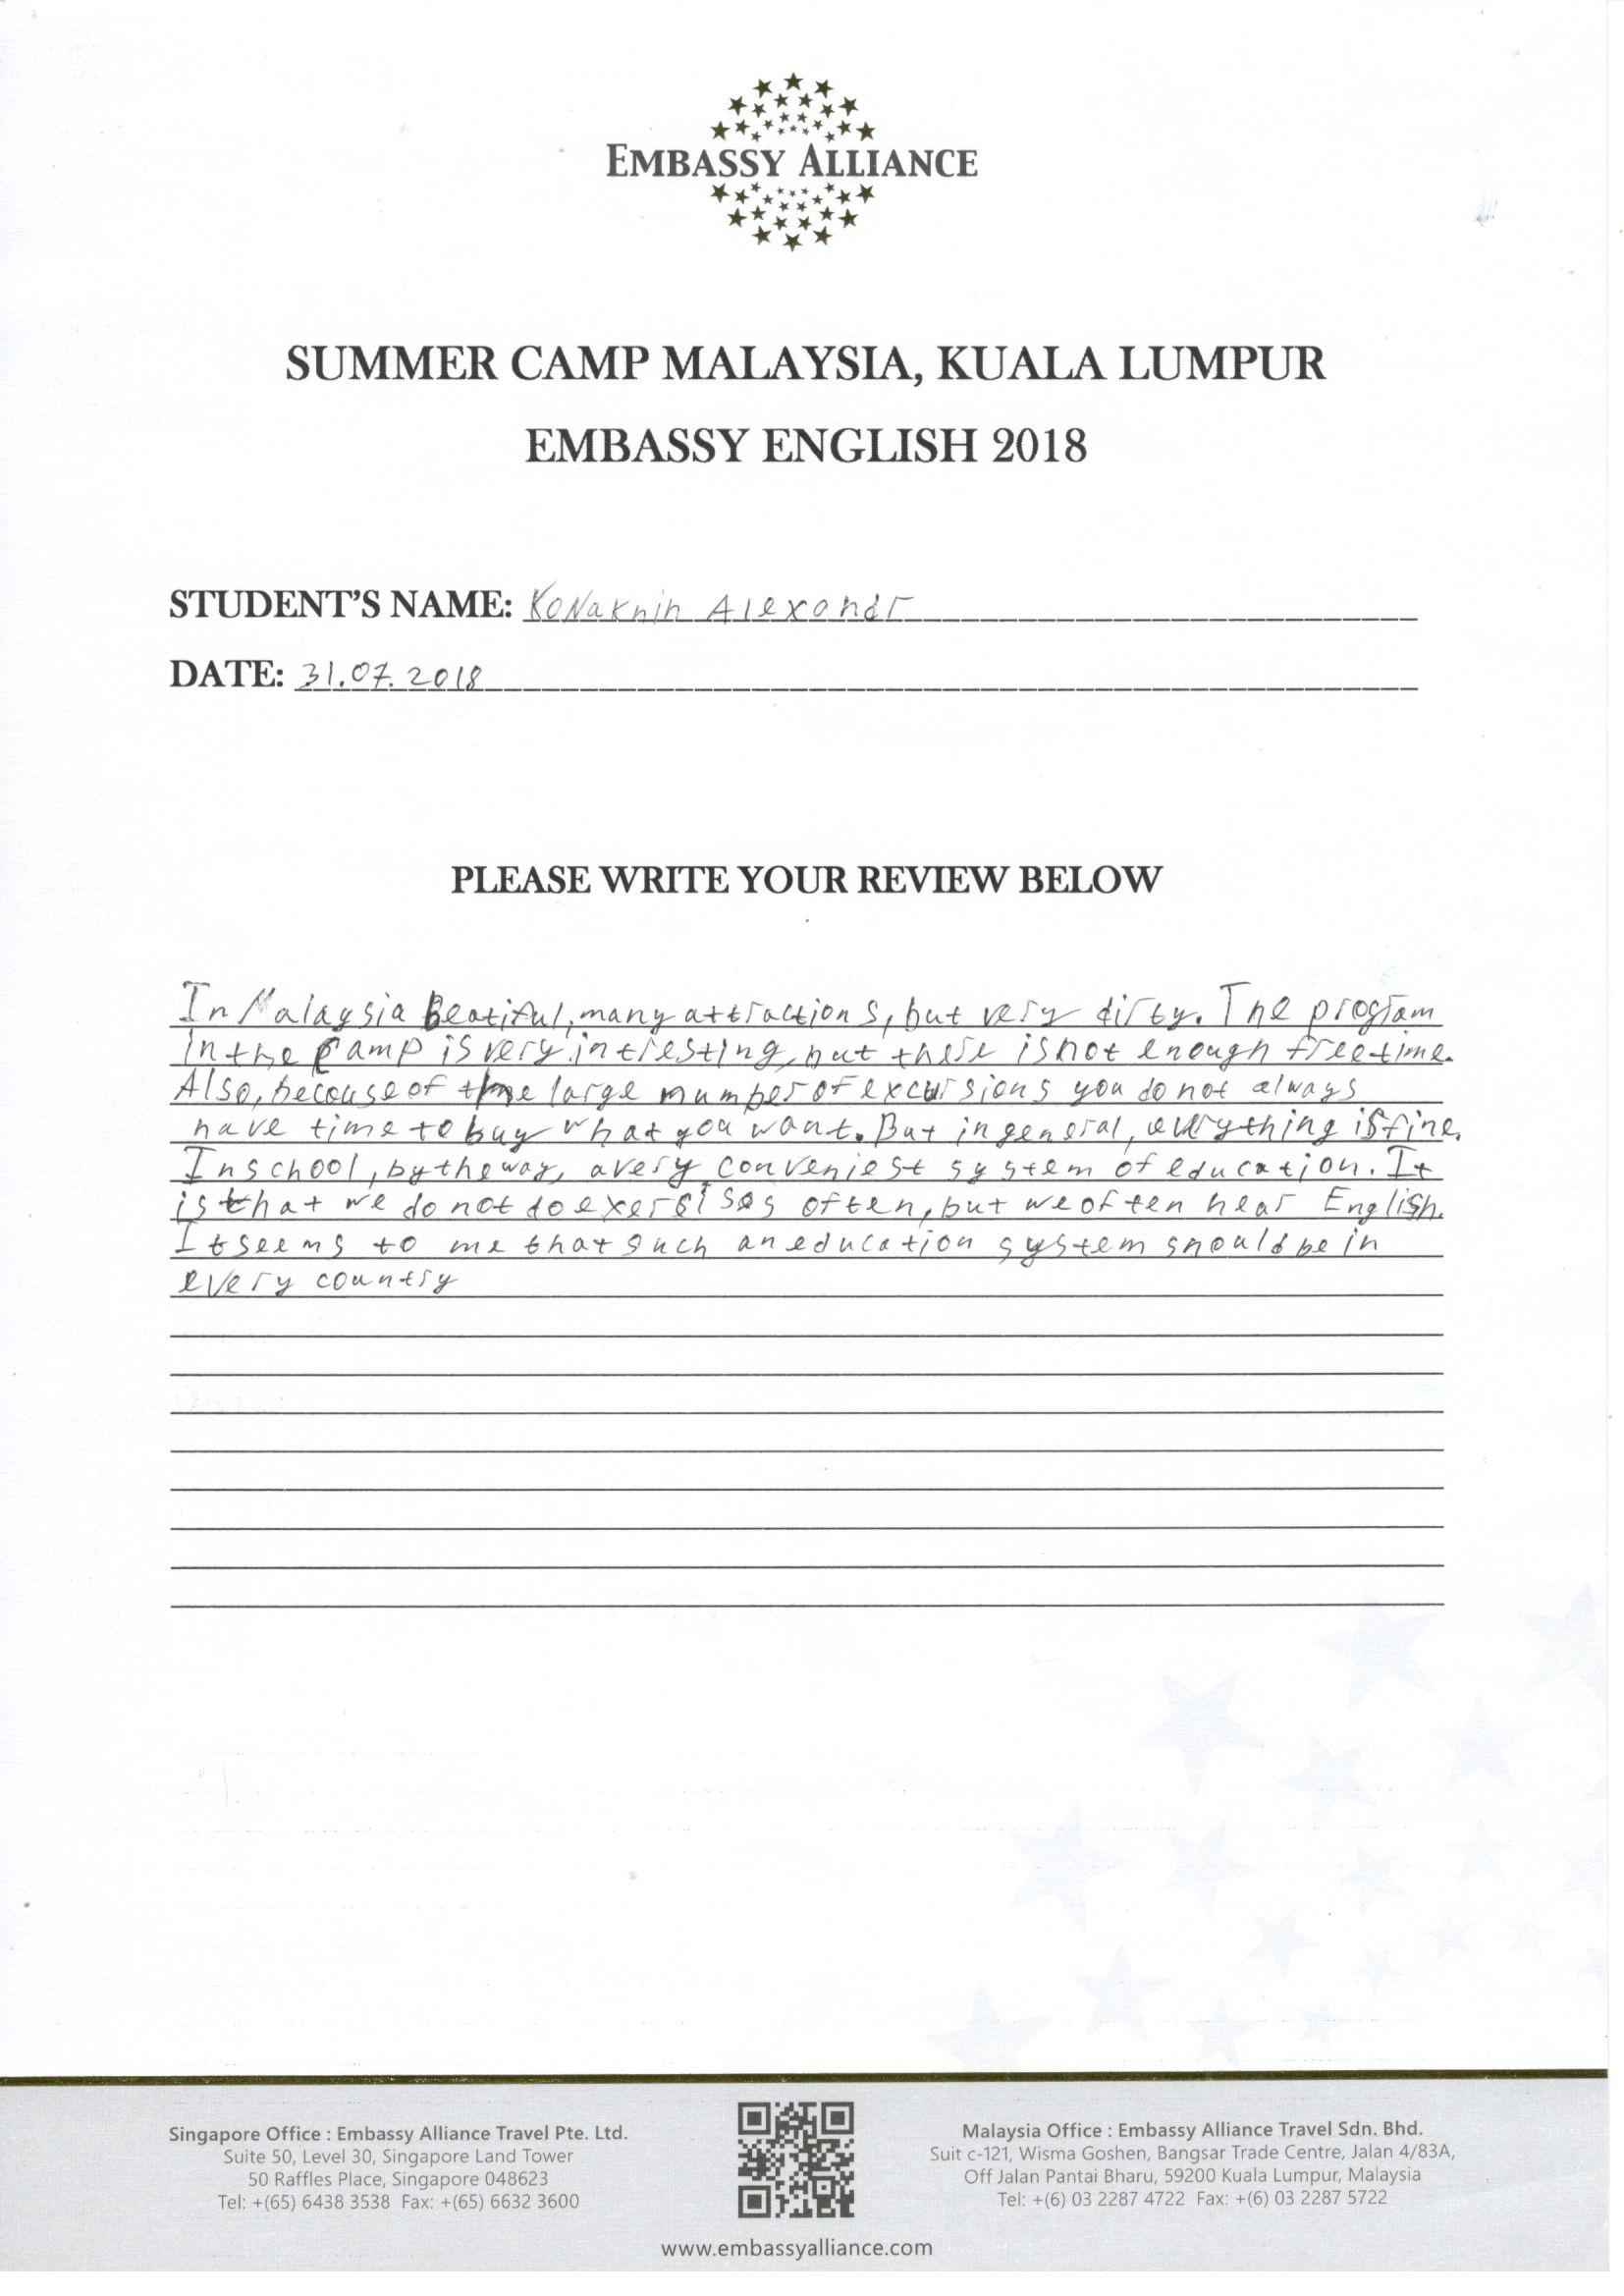 EMBASSY ALLIANCE
SUMMER CAMP MALAYSIA, KUALA LUMPUR
EMBASSY ENGLISH 2018
STUDENT'S NAME: Konaknin Alexandr
DATE: 31.07.2018
PLEASE WRITE YOUR REVIEW BELOW
In Malaysia Beatiful, many attractions, but very dirty. The program
in the camp is very intresting, but there is not enough free time.
Also, becouse of the large number of excursions you do not always
have time to buy what you want. But in general, everything is fine.
In school, by the way, a very conveniest system of education. It
is that we do not do exercises often, but we often hear English.
It seems to me that such an education system should be in
every country
Singapore Office : Embassy Alliance Travel Pte. Ltd.
Suite 50, Level 30, Singapore Land Tower
50 Raffles Place, Singapore 048623
Tel: +(65) 6438 3538 Fax: +(65) 6632 3600
Malaysia Office : Embassy Alliance Travel Sdn. Bhd.
Suit c-121, Wisma Goshen, Bangsar Trade Centre, Jalan 4/83A,
Off Jalan Pantai Bharu, 59200 Kuala Lumpur, Malaysia
Tel: +(6) 03 2287 4722 Fax: +(6) 03 2287 5722
www.embassyalliance.com